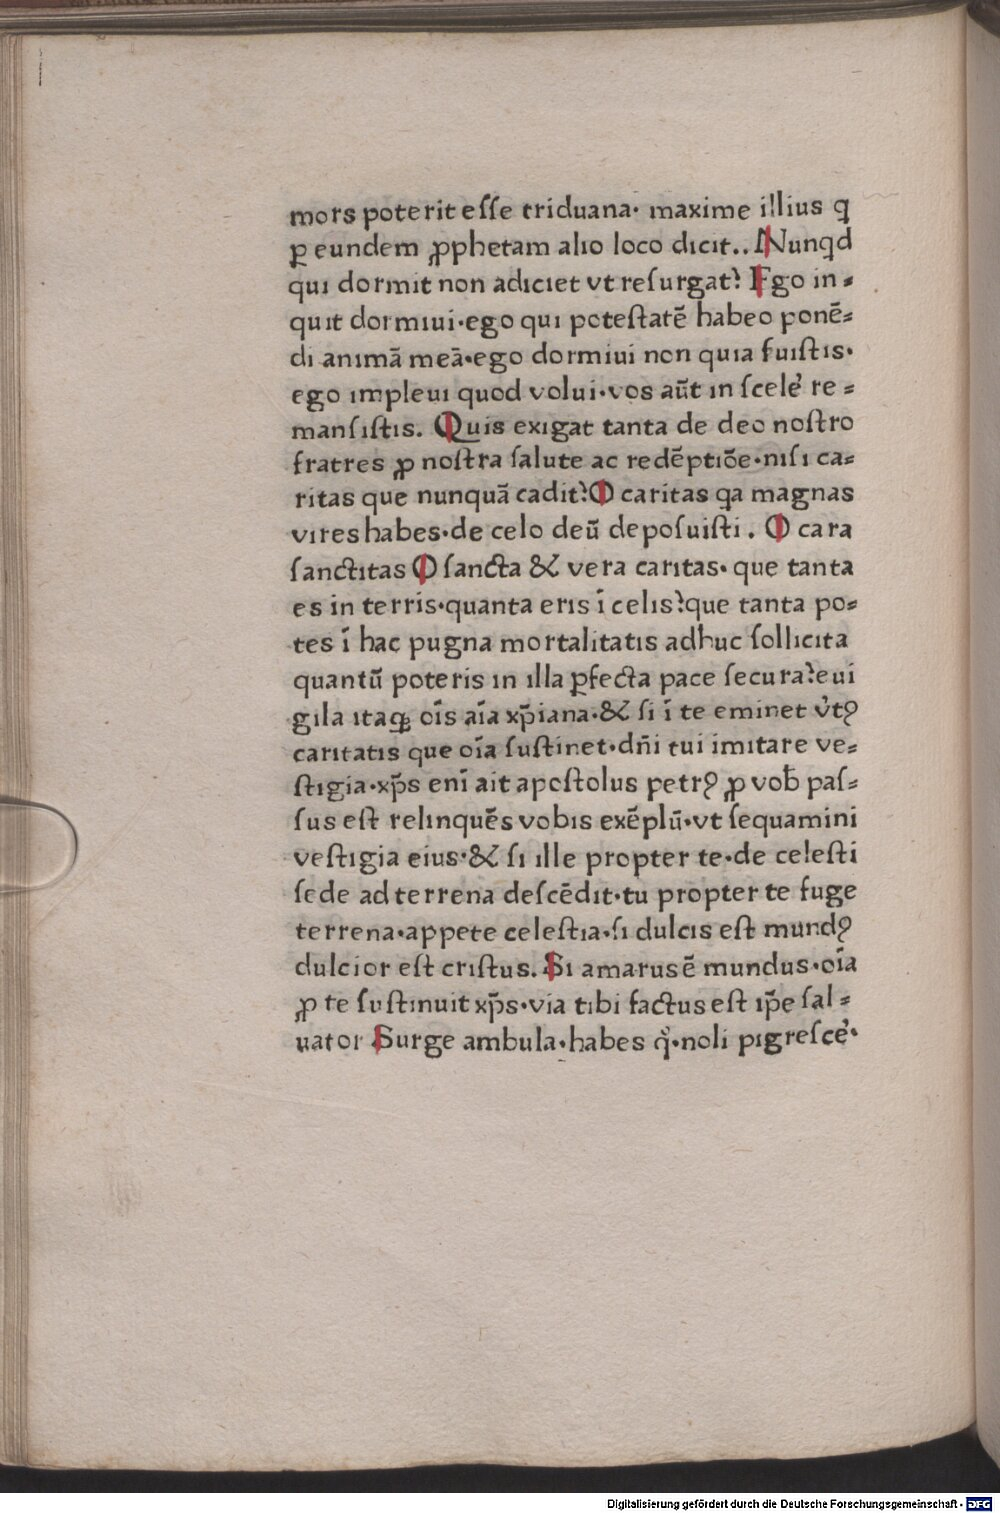 mors poterit eſſe triduana· maxime illius ꝗ
ꝑ eundem ꝓphetam alio loco dicit.. Nunqd
qui dormit non adiciet vt reſurgat? Ego in⸗
quit dormiui·ego qui poteſtatē habeo ponē⸗
di animā meā·ego dormiui non quia fuiſtis·
ego impleui quod volui·vos aūt in ſcele᷒ re⸗
manſiſtis. Quis exigat tanta de deo noſtro
fratres ꝓ noſtra ſalute ac redēptiōe·niſi ca⸗
ritas que nunquā cadit? O caritas qa magnas
vires habes·de celo deū depoſuiſti. O cara
ſanctitas O ſancta & vera caritas· que tanta
es in terris·quanta eris ī celis?que tanta po⸗
tes ī hac pugna mortalitatis adhuc ſollicita
quantū poteris in illa ꝑfecta pace ſecura?eui
gila itaqꝫ oīs aīa xp̄iana·& ſi ī te eminet v̓tꝰ
caritatis que oīa ſuſtinet·dn̄i tui imitare ve⸗
ſtigia·xp̄s enī ait apoſtolus petrꝰ ꝓ vob̄ paſ⸗
ſus eſt relinquēs vobis exēplū·vt ſequamini
veſtigia eius·& ſi ille propter te·de celeſti
ſede ad terrena deſcēdit·tu propter te fuge
terrena·appete celeſtia·ſi dulcis eſt mundꝰ
dulcior eſt criſtus. Si amarus ē mundus·oīa
ꝓ te ſuſtinuit xp̄s·via tibi factus eſt ip̄e ſal⸗
uator Surge ambula·habes q̊·noli pigreſce᷒·
Digitalisierung gefördert durch die Deutsche Forschungsgemeinschaft - DFG